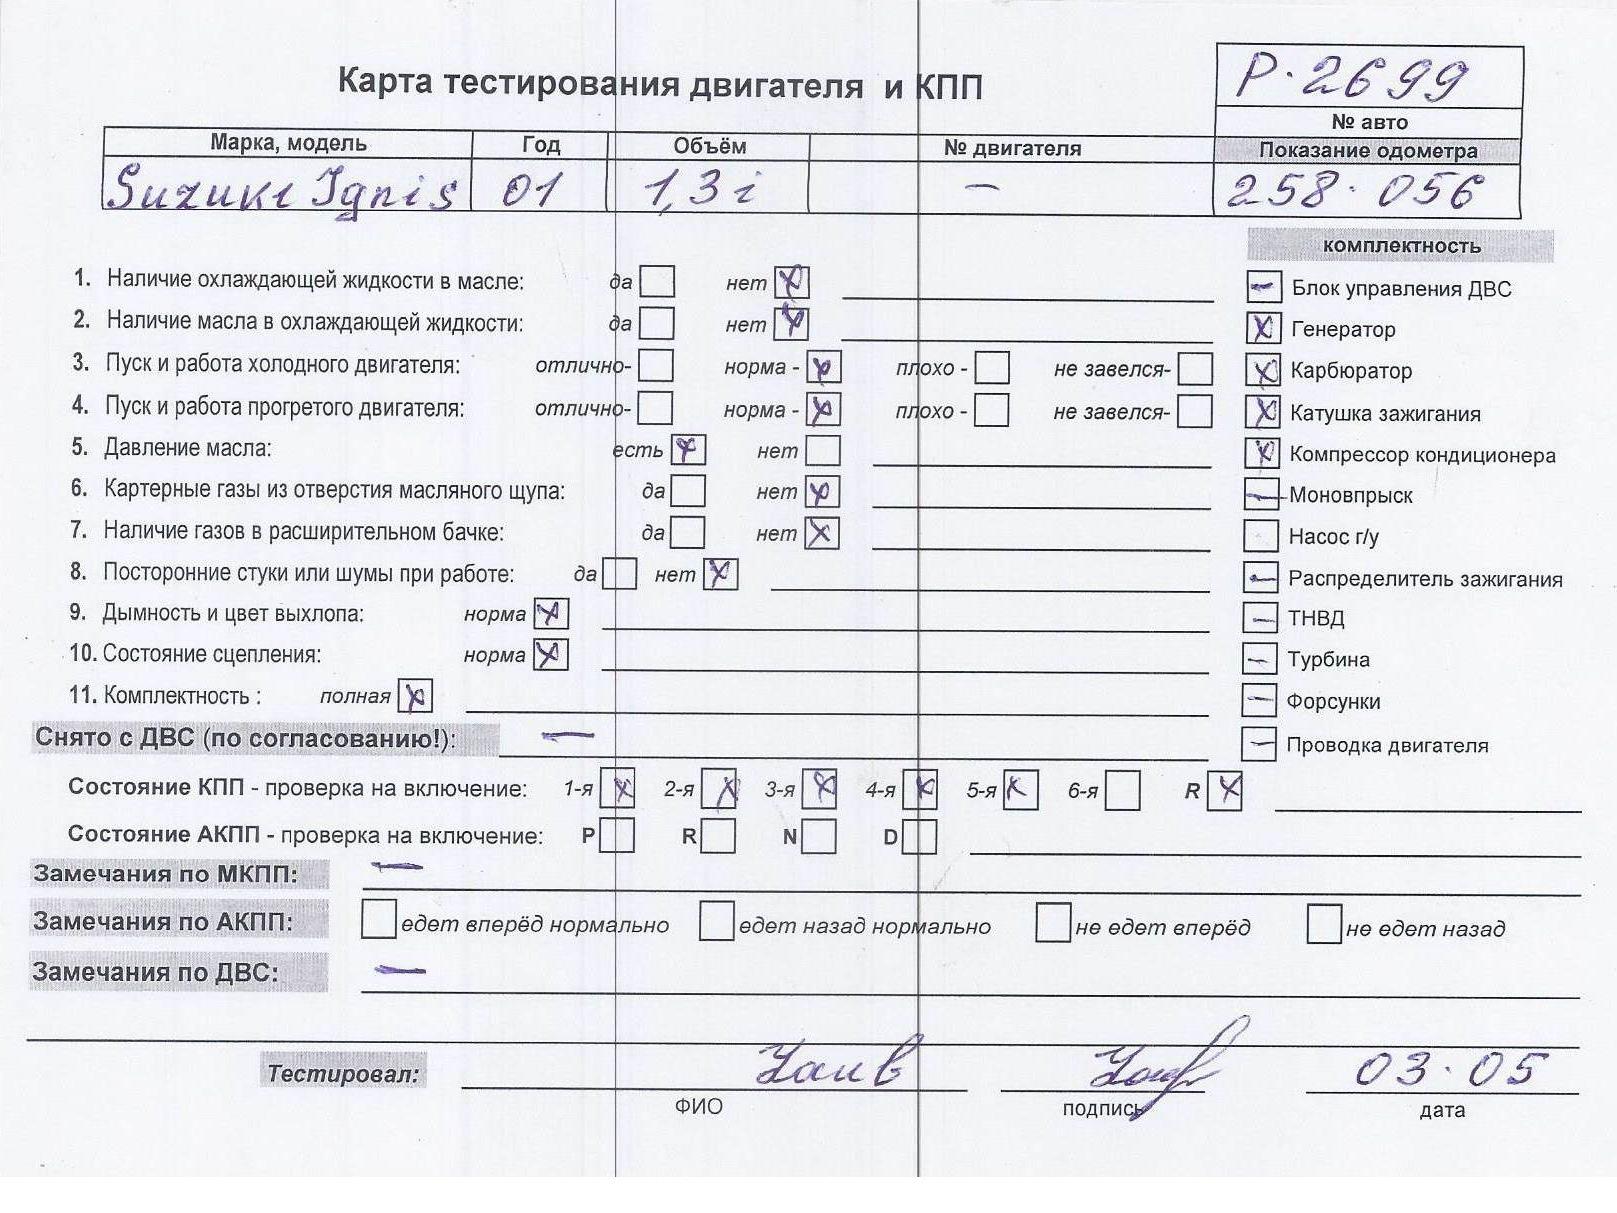 P·2699
Карта тестирования двигателя и КПП
№ авто
Марка, модель Год Объём № двигателя Показание одометра
Suzuki Ignis 01 1,3i — 258·056
комплектность
1. Наличие охлаждающей жидкости в масле: да нет X
— Блок управления ДВС
2. Наличие масла в охлаждающей жидкости: да нет X
X Генератор
3. Пуск и работа холодного двигателя: отлично- норма - X плохо - не завелся-
X Карбюратор
4. Пуск и работа прогретого двигателя: отлично- норма - X плохо - не завелся-
X Катушка зажигания
5. Давление масла: есть X нет
X Компрессор кондиционера
6. Картерные газы из отверстия масляного щупа: да нет X
— Моновпрыск
7. Наличие газов в расширительном бачке: да нет X
Насос г/у
8. Посторонние стуки или шумы при работе: да нет X
— Распределитель зажигания
9. Дымность и цвет выхлопа: норма X
— ТНВД
10. Состояние сцепления: норма X
— Турбина
11. Комплектность : полная X
— Форсунки
Снято с ДВС (по согласованию!): —
— Проводка двигателя
Состояние КПП - проверка на включение: 1-я X 2-я X 3-я X 4-я X 5-я X 6-я R X
Состояние АКПП - проверка на включение: P R N D
Замечания по МКПП: —
Замечания по АКПП: едет вперёд нормально едет назад нормально не едет вперёд не едет назад
Замечания по ДВС: —
Тестировал: 03·05
ФИО подпись дата